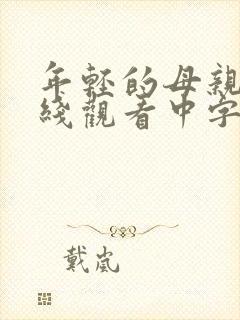 年輕的母親
綫觀看中字
戴嵐